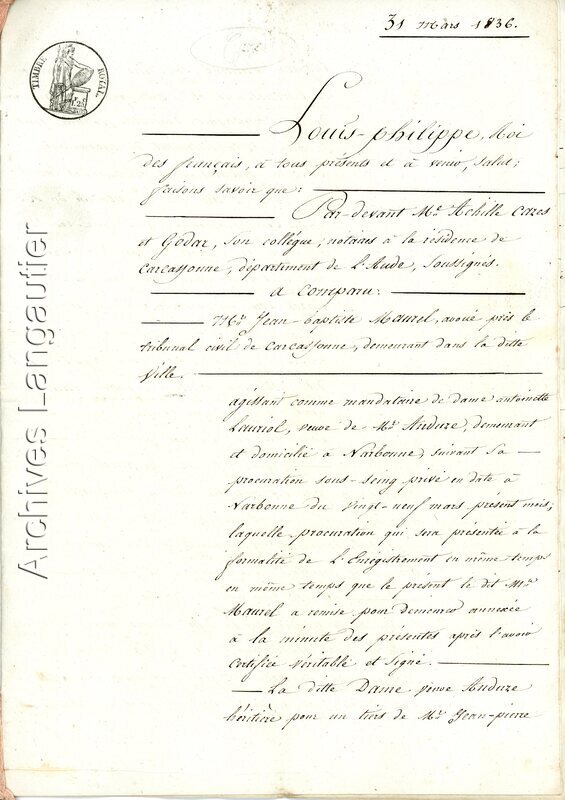 31 Mars 1836.
TIMBRE ROYAL
Louis-philippe, Roi
des français, à tous présents et à venir, salut;
faisons savoir que:
Par-devant Me. Achille Cazes
et Godar, son collègue, notaires à la résidence de
Carcassonne, département de l'Aude, soussignés.
a comparu:
Mr. Jean-baptiste Maurel, avoué près le
tribunal civil de Carcassonne, demeurant dans la ditte
ville.
agissant comme mandataire de dame antoinette
Lauriol, veuve de Mr. Anduze, demeurant
et domicilié à Narbonne, suivant sa
procuration sous-seing privé en date à
Narbonne du vingt-neuf mars présent mois,
laquelle procuration qui sera présentée à la
formalité de l'Enregistrement en même temps
en même temps que le présent le dit Mr.
Maurel a remise pour demeurer annexée
à la minute des présentes après l'avoir
certifiée véritable et signé.
La ditte Dame veuve Anduze
héritière pour un tiers de Mr. Jean-pierre
Archives Langautier